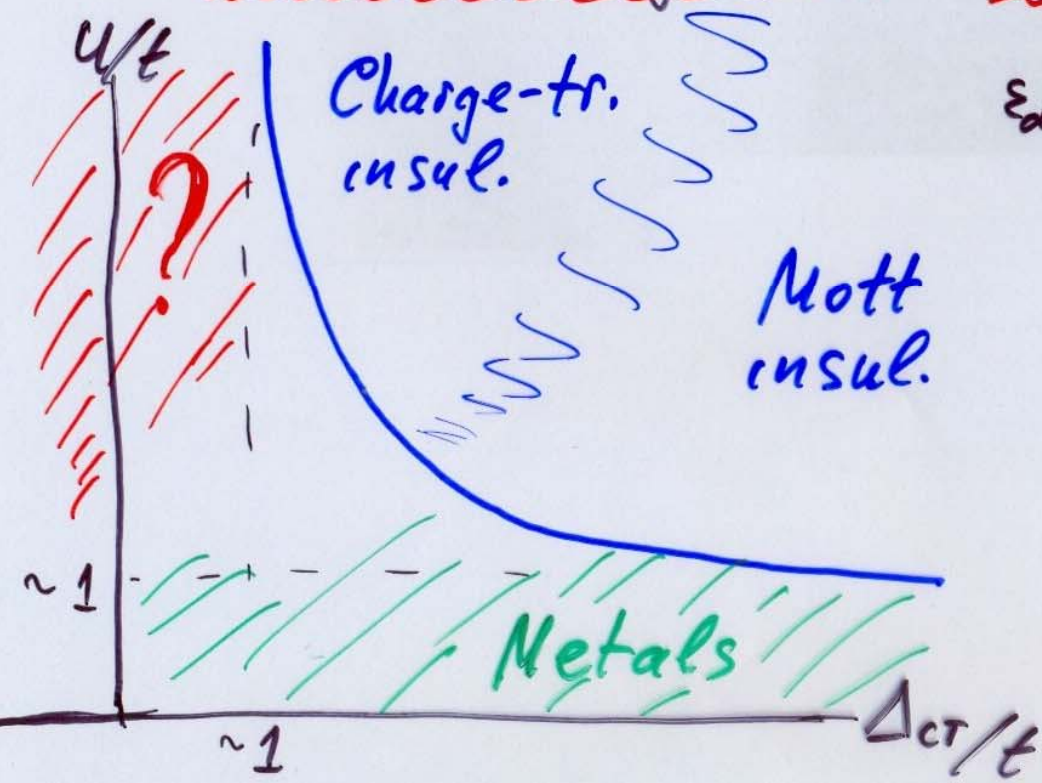 U/t
Charge-tr.
insul.
?
Mott
insul.
~ 1
Metals
~1
ΔCT/t